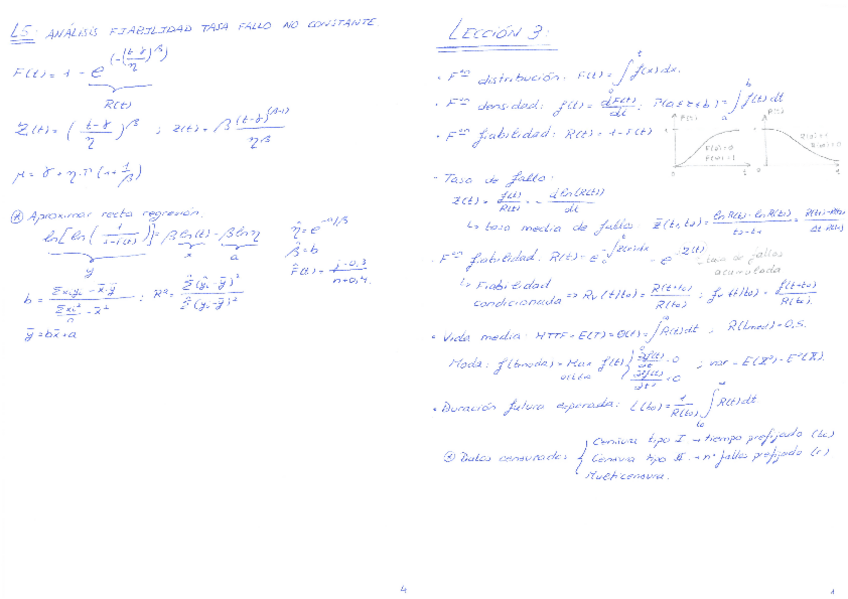 L5: ANÁLISIS FIABILIDAD TASA FALLO NO CONSTANTE
F(t) = 1 - e^(-((t-γ)/η)^β)
R(t)
Z(t) = ((t-γ)/η)^β ; z(t) = β (t-γ)^(β-1) / η^β
μ = γ + η·Γ(1 + 1/β)
Aproximar recta regresión.
ln[ln(1/(1-F(t)))] = β ln(t) - β ln η
y x a
η̂ = e^(-a/β)
β̂ = b
F̂(t) = (i-0,3)/(n+0,4)
b = (Σxiyi/n - x̄·ȳ)/(Σxi²/n - x̄²) ; R² = Σ(ŷi-ȳ)²/Σ(yi-ȳ)²
ȳ = bx̄+a
4
LECCIÓN 3:
· Fᶜⁱᵒⁿ distribución: F(t) = ∫ f(x)dx.
· Fᶜⁱᵒⁿ densidad: f(t) = dF(t)/dt ; P(a≤t≤b) = ∫ₐᵇ f(t)dt
· Fᶜⁱᵒⁿ fiabilidad: R(t) = 1-F(t)
F(t) R(t)
- Tasa de fallo:
Z(t) = f(t)/R(t) = - d ln(R(t))/dt
↳ tasa media de fallos
· Fᶜⁱᵒⁿ fiabilidad: R(t) = e^(-∫z(x)dx) = e^(-Z(t)) → tasa de fallos
acumulada
↳ Fiabilidad
condicionada ⇒ Rv(t/to) = R(t+to)/R(to) ; fv(t/to) = f(t+to)/R(to)
· Vida media: MTTF = E(T) = θ(t) = ∫R(t)dt ; R(tmed) = 0,5.
Moda: f(tmoda) = Max f(t) ; var = E(X²) - E²(X).
· Duración futura esperada: L(to) = 1/R(to) ∫ R(t)dt
Datos censurados
Censura tipo I → tiempo prefijado (to)
Censura tipo II → nº fallos prefijado (r)
Multicensura.
1